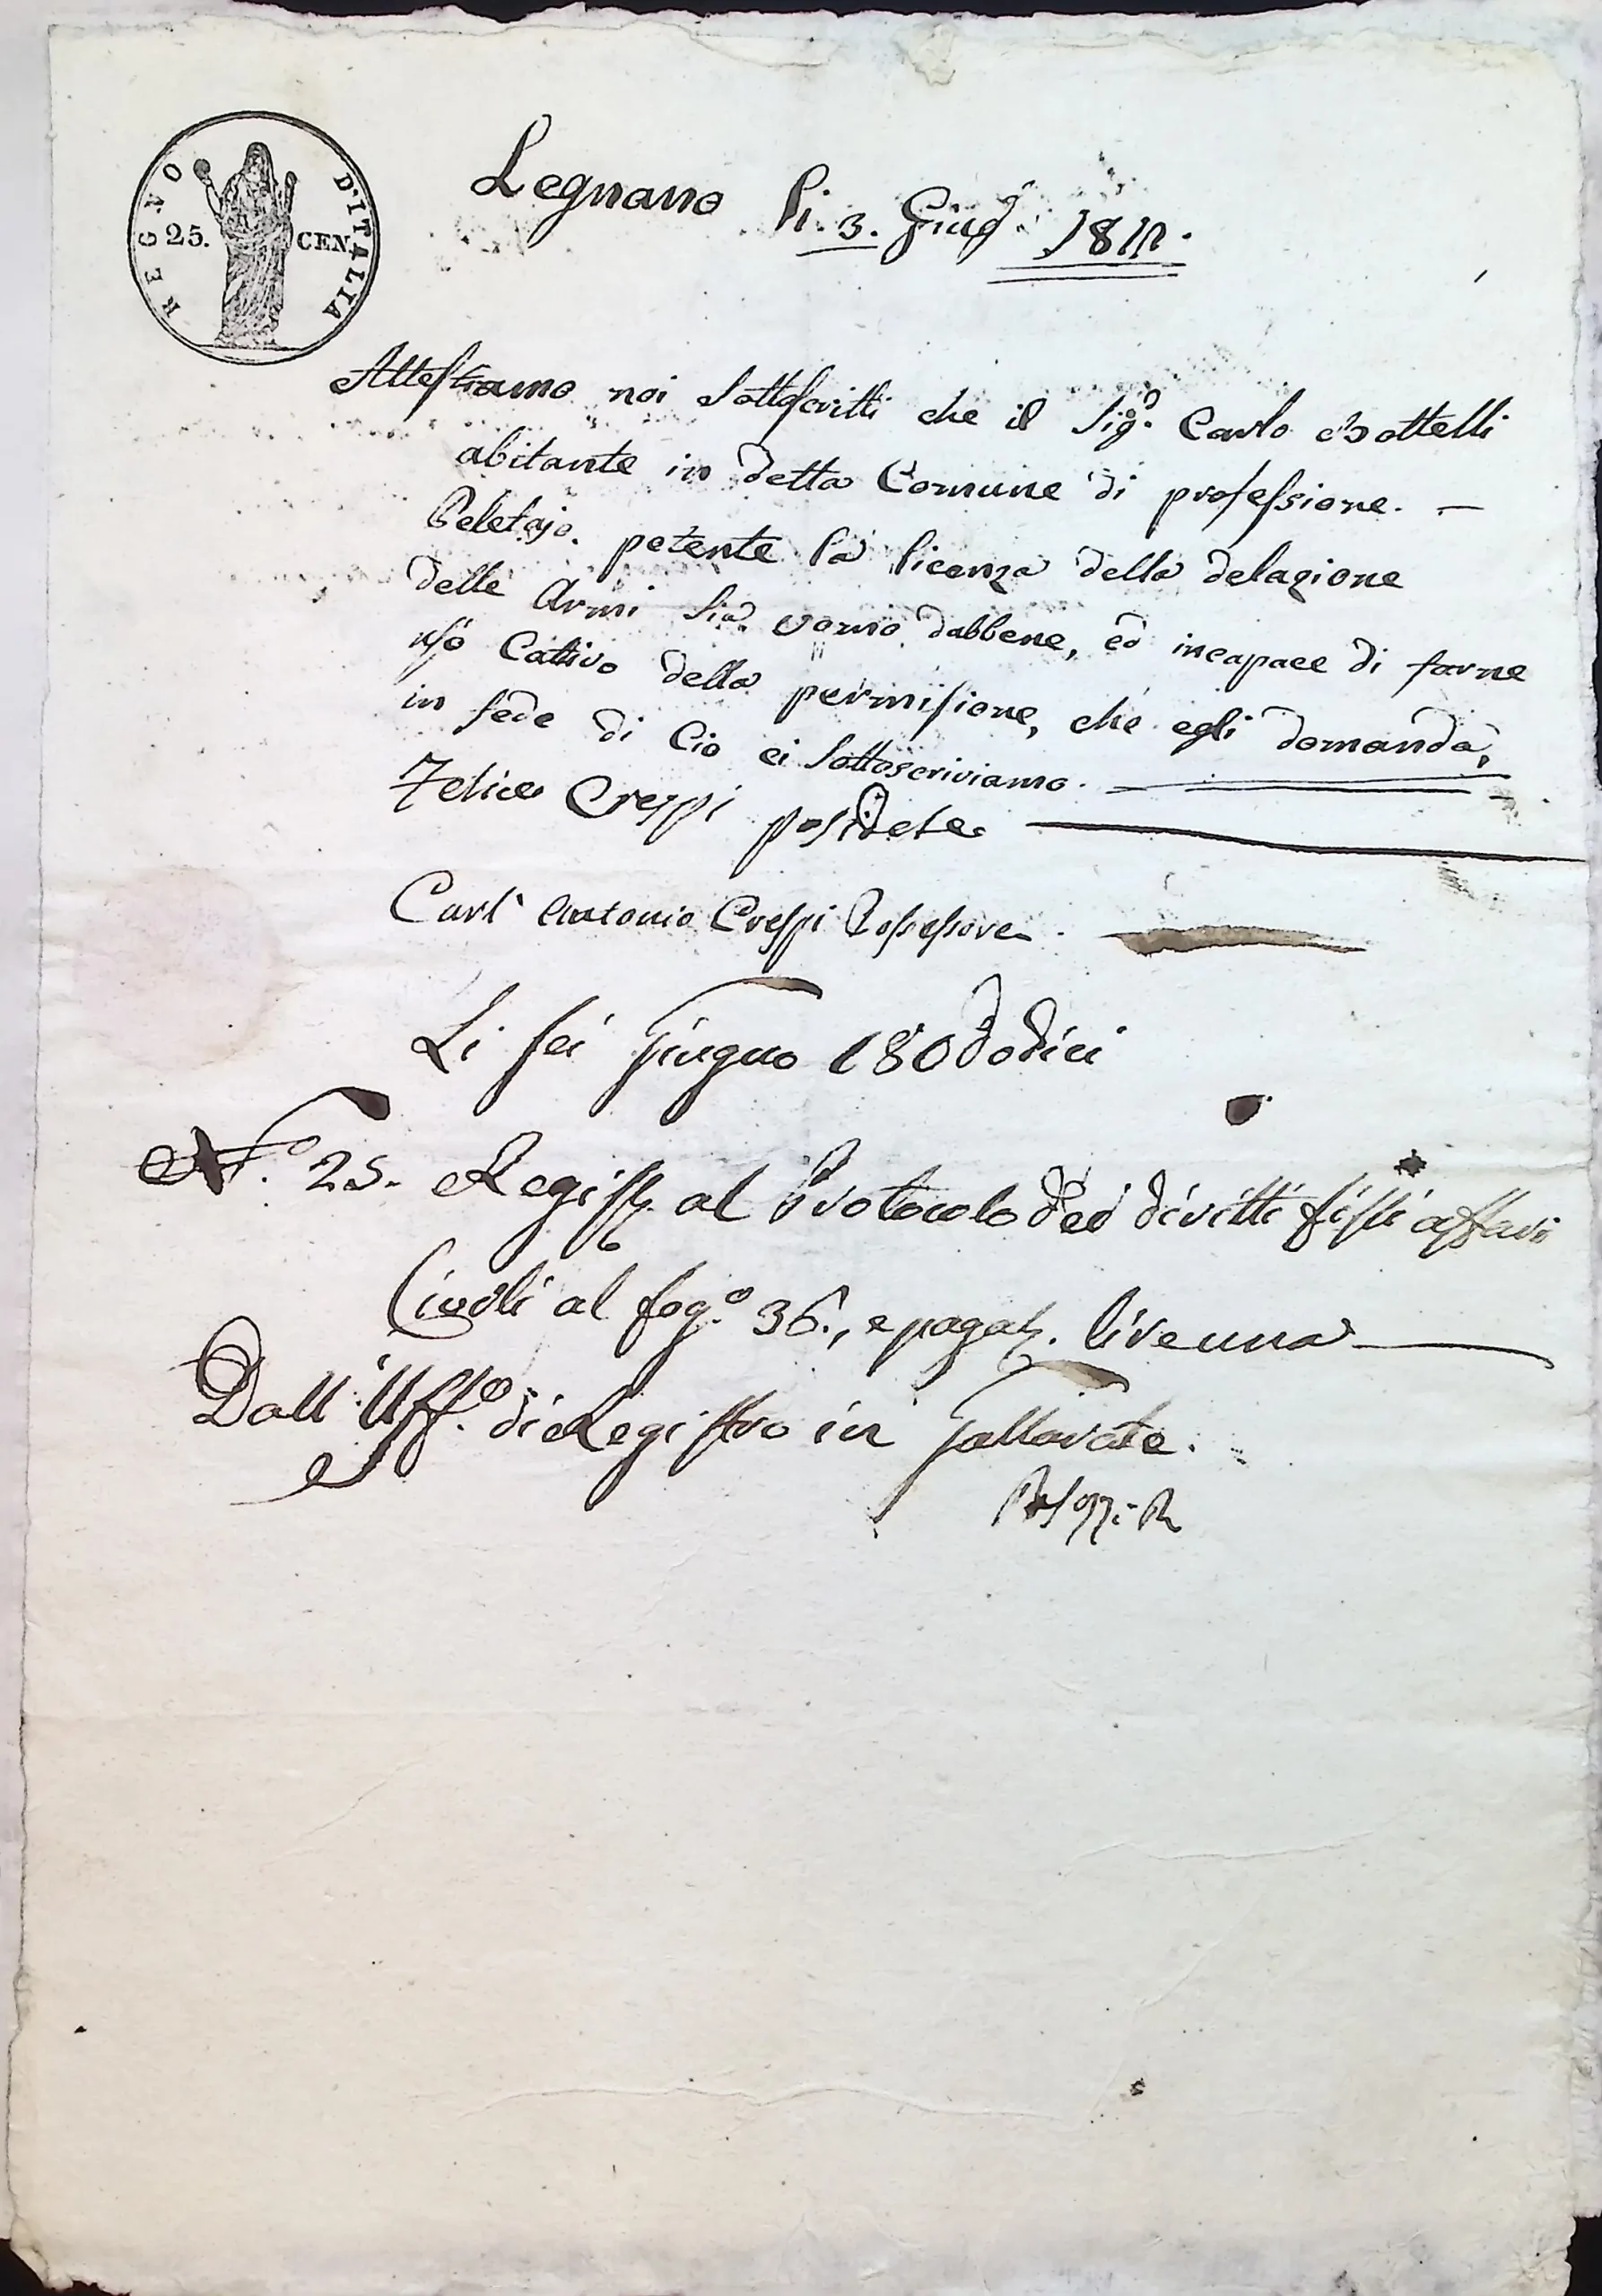 REGNO D'ITALIA
25. CEN.
Legnano li. 3. Giug.o 1812.
Attestiamo noi Sottoscritti che il Sig.r Carlo Bottelli
abitante in detta Comune di professione. —
Peletajo. petente la licenza della delazione
delle Armi sia uomo dabbene, ed incapace di farne
uso Cattivo della permisione, che egli domanda,
in fede di Cio ci Sottoscriviamo.
Felice Crespi posidete
Carl' Antonio Crespi Possessore
Li sei Giugno 180dodici
N.o 25. Regist. al Protocolo dei diritti fissi affari
Civili al fog.o 36., e pagat. lire una
Dall' Uff.o di Registro in Gallarate.